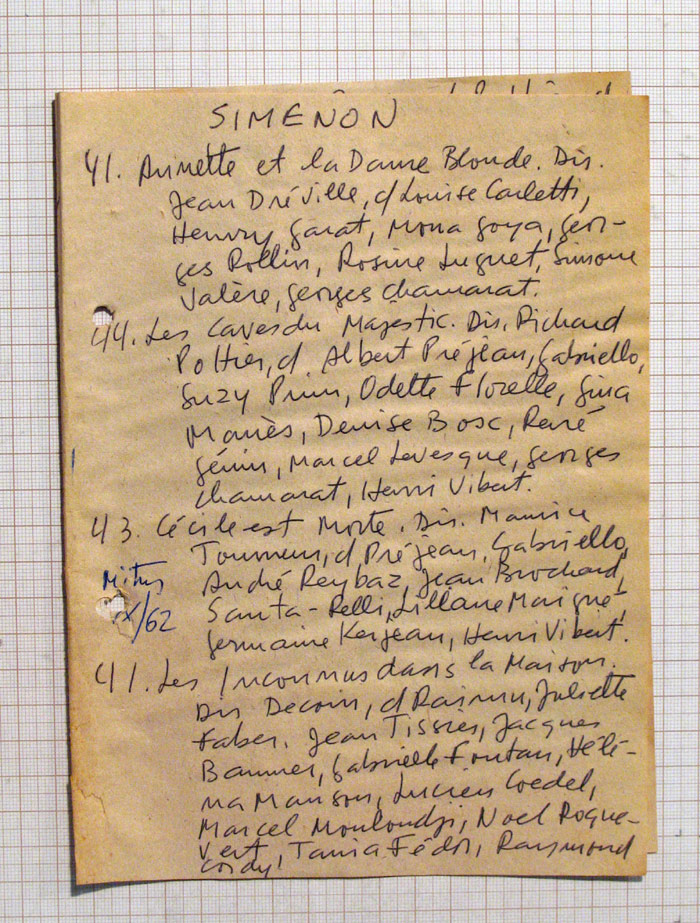 SIMENON
41. Annette et la Dame Blonde. Dir.
Jean Dréville, d Louise Carletti,
Henry Garat, Mona Goya, Geor-
ges Rollin, Rosine Luguet, Simone
Valère, Georges Chamarat.
44. Les Caves du Majestic. Dir. Richard
Pottier, d Albert Préjean, Gabriello,
Suzy Prim, Odette Florelle, Gina
Manès, Denise Bosc, René
Génin, Marcel Levesque, Georges
Chamarat, Henri Vibert.
43. Cécile est Morte. Dir. Maurice
Tourneur, d Préjean, Gabriello,
André Reybaz, Jean Brochard,
Santa-Relli, Liliane Maigné,
Germaine Kerjean, Henri Vibert.
IX/62
41. Les Inconnus dans la Maison.
Dir Decoin, d Raimu, Juliette
Faber. Jean Tissier, Jacques
Baumer, Gabrielle Fontan, Hélé-
na Manson, Lucien Coedel,
Marcel Mouloudji, Noel Roque-
vert, Tania Fédor, Raymond
Cordy.